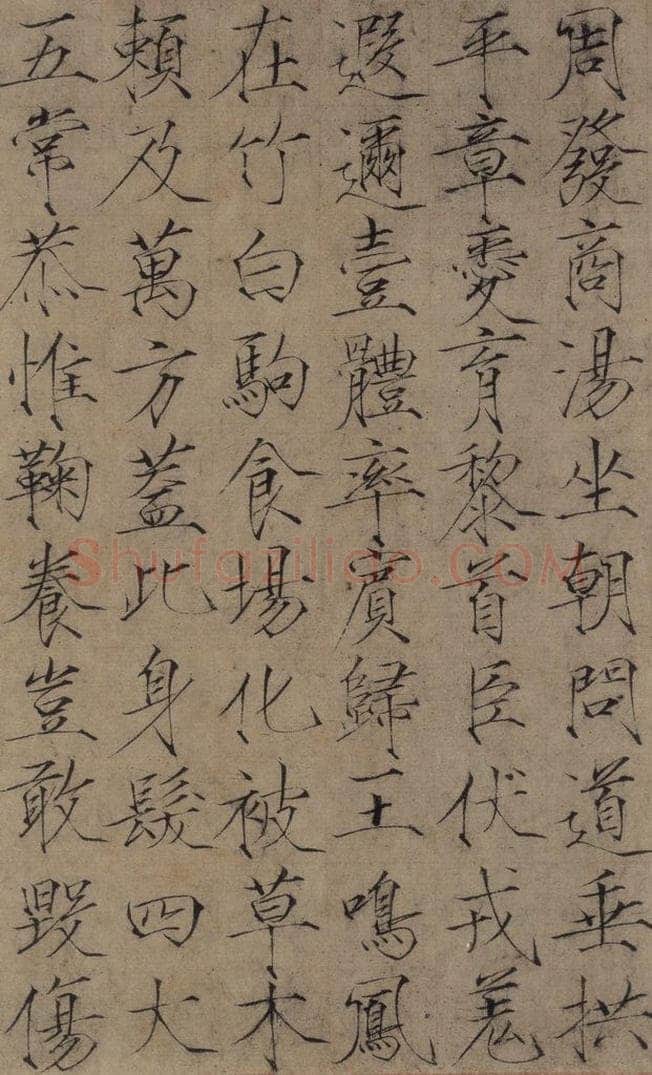 周發商湯坐朝問道垂拱
平章愛育黎首臣伏戎羌
遐邇壹體率賓歸王鳴鳳
在竹白駒食場化被草木
賴及萬方蓋此身髮四大
五常恭惟鞠養豈敢毀傷
Shufaziliao.COM